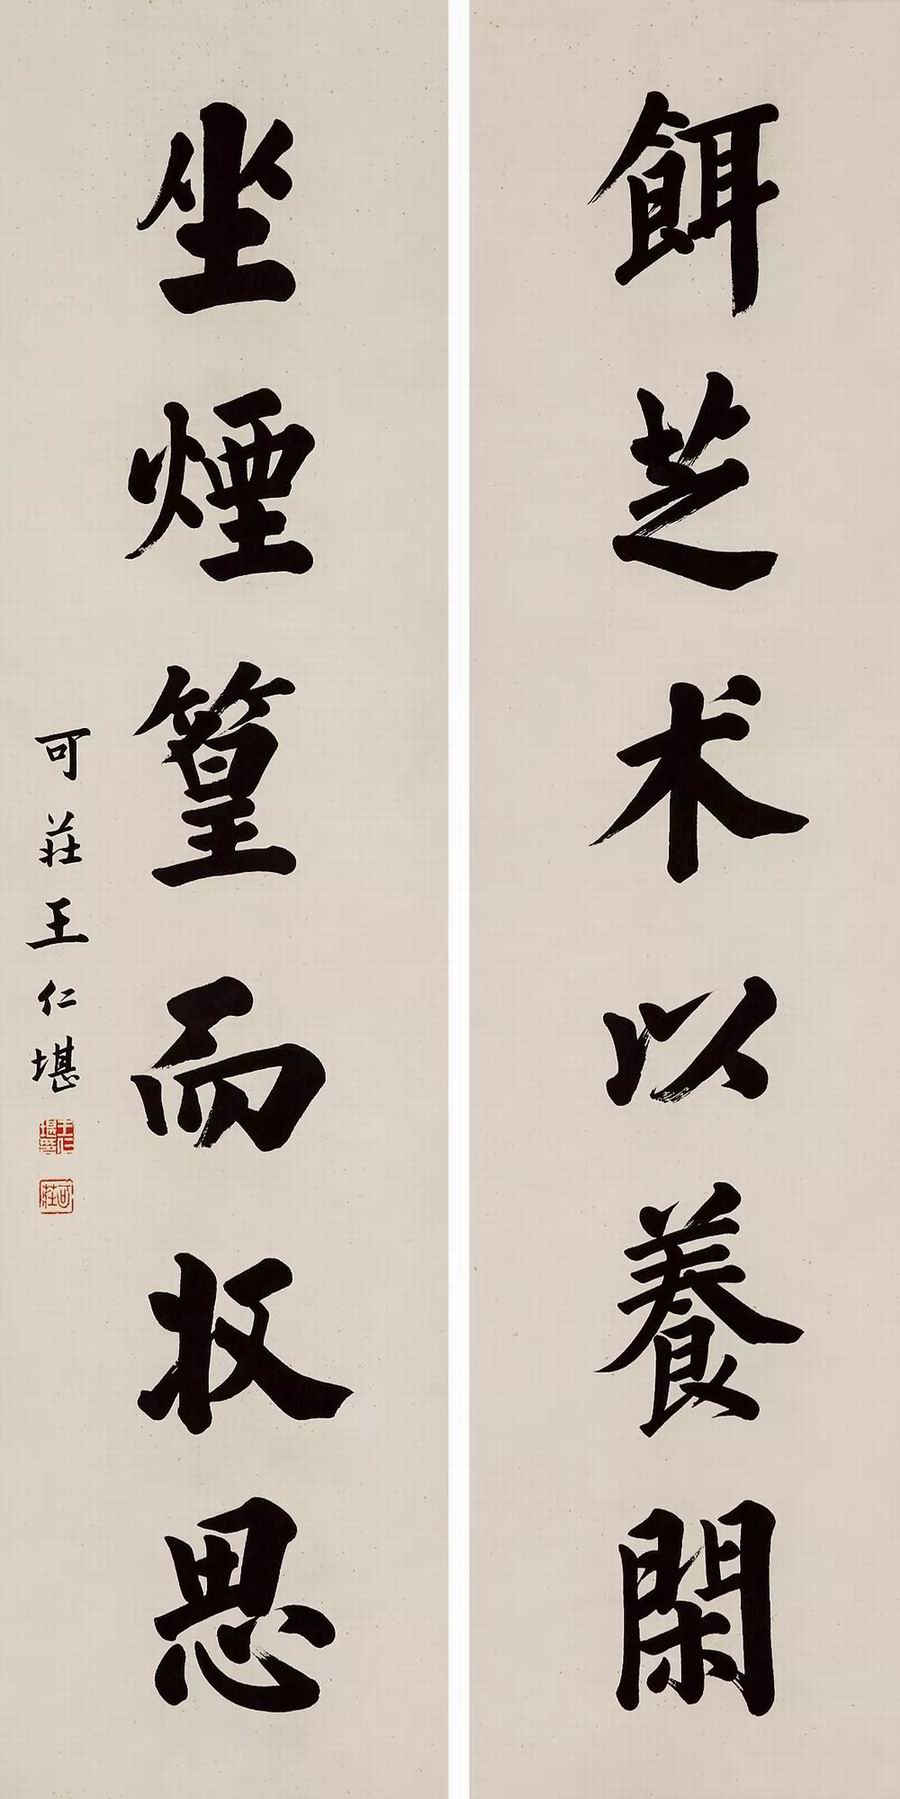 餌芝术以養閑
坐煙篁而收思
可莊王仁堪
王仁堪印
可莊